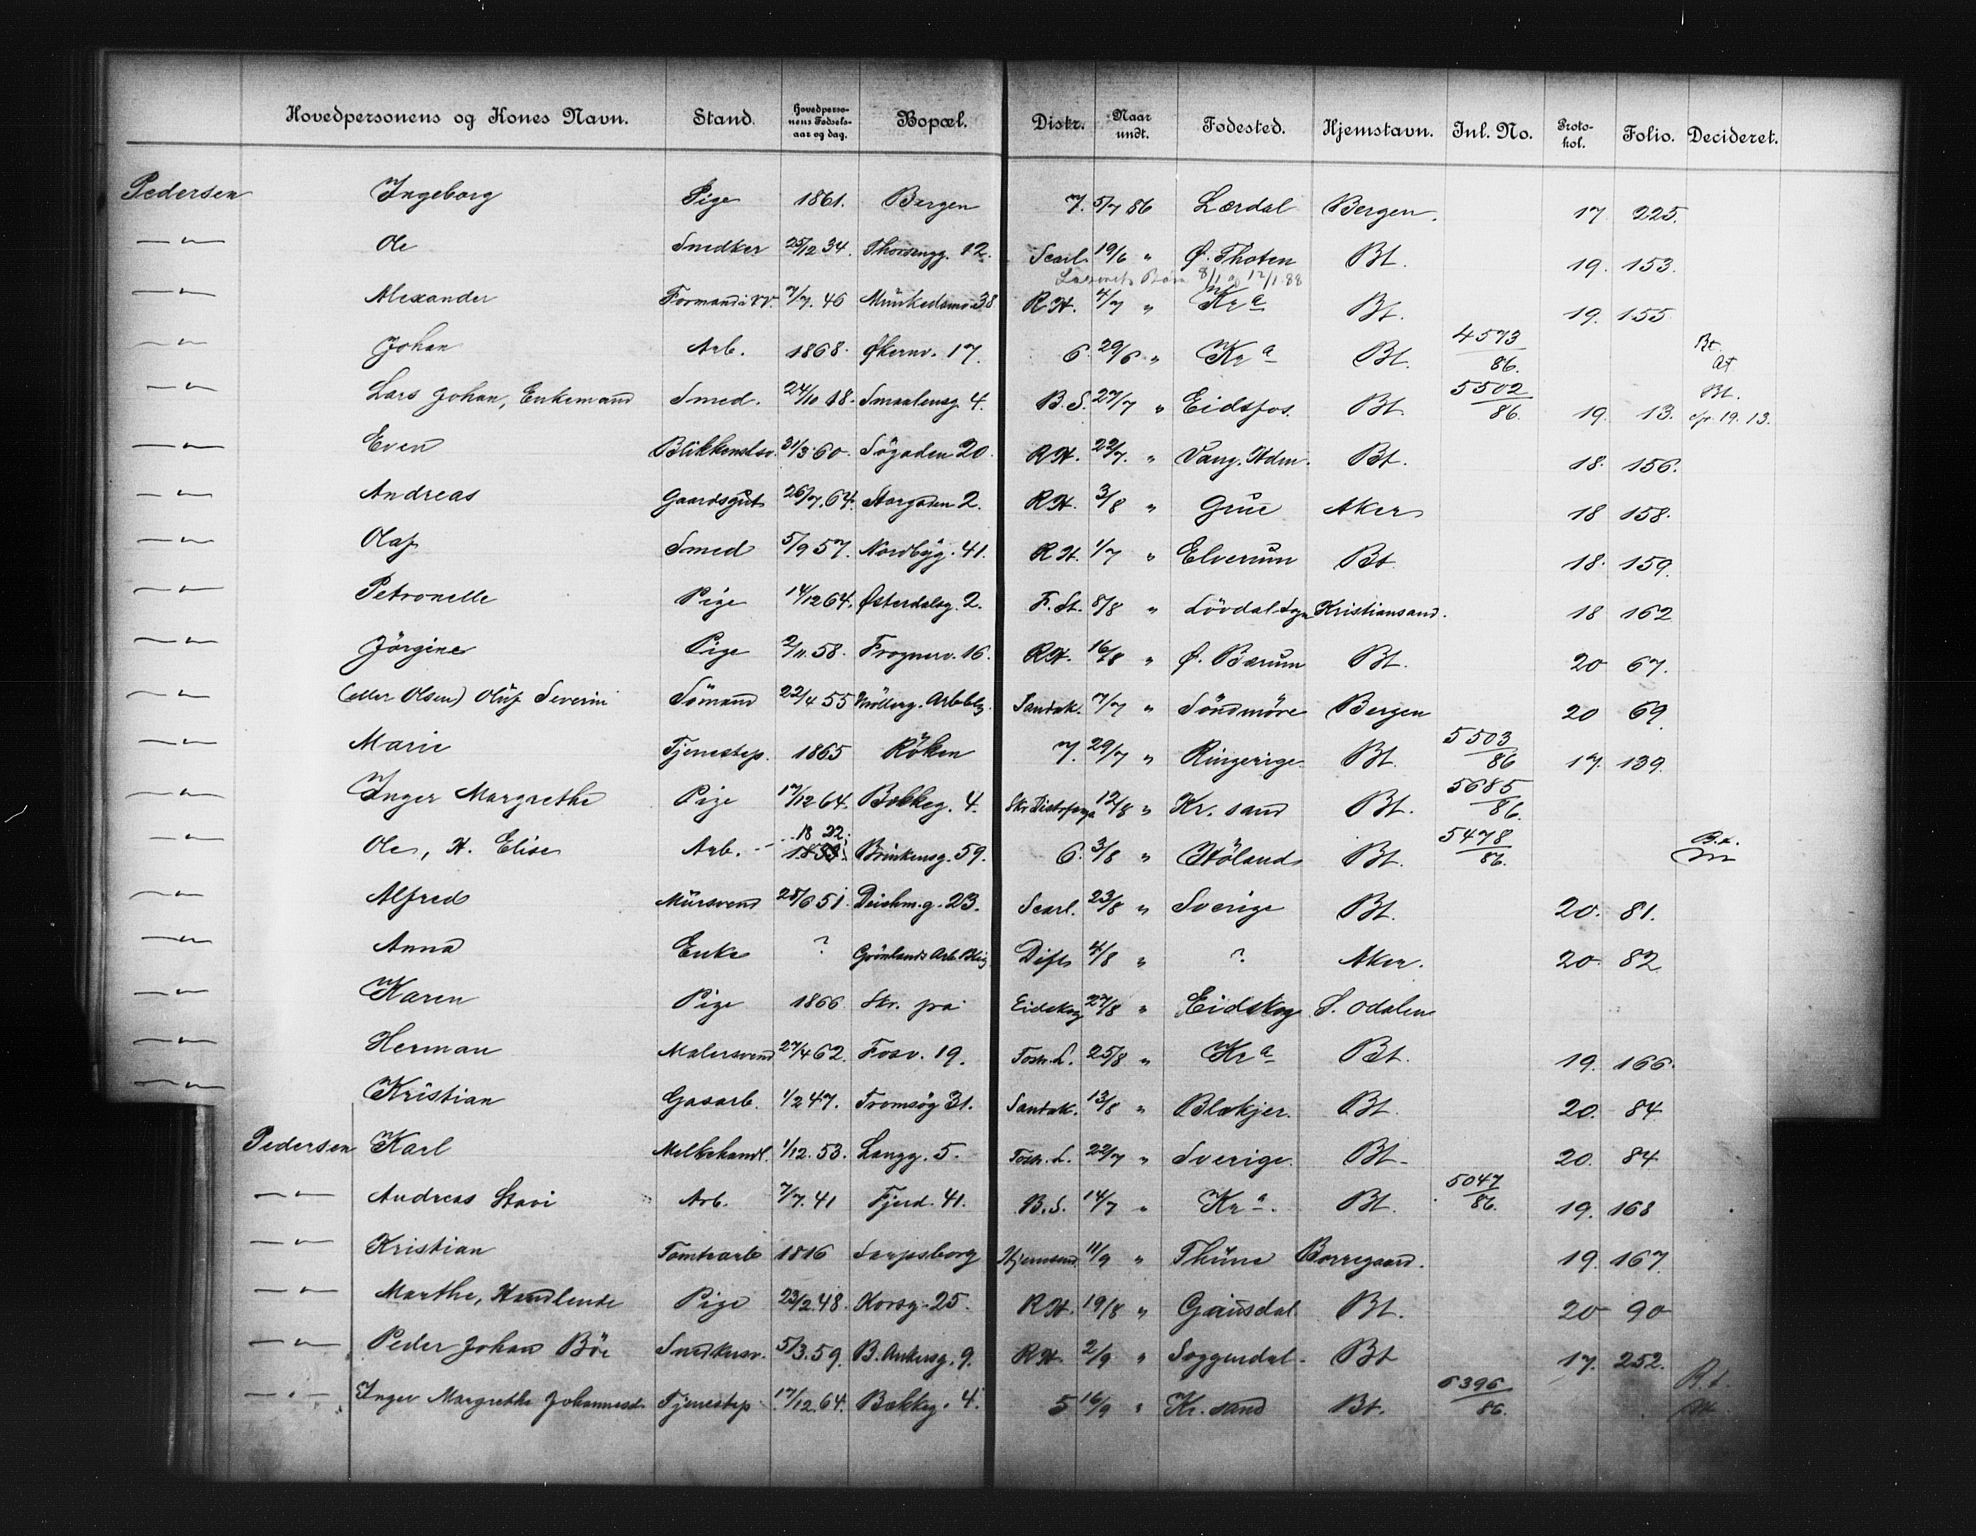 Hovedpersonens og Kones Navn. Stand. Hovedperso-nens Fødsels-aar og dag. Bopæl. Distr. Naar undt. Fødested. Hjemstavn. Inl. No. Proto-kol. Folio. Decideret.
Pedersen Ingeborg Pige 1861. Bergen 7. 5/7 86 Lærdal Bergen. 17 225.
—"— Ole Snedker 25/12 34. Thorsengg. 12. Scarl. 19/6 " Ø. Thoten Bt. 19. 153.
8/1 og 12/1 88
—"— Alexander Formand i VV. 7/7. 46 Munkedamsv 38 R.H. 4/7 " Kra Bt. 19. 155
—"— Johan Arb. 1868. Økernv. 17. 6. 29/6 " Kra Bt. 4573/86. Bt. At
—"— Lars Johan, Enkemand Smed. 24/10 18. Smaalensg 4. B.S. 27/7 " Eidsfos. Bt 5502/86. 19. 13. Bt. cfr. 19. 13.
—"— Even Blikkenslsv. 31/3 60. Søgaden 20. R.H. 22/7. " Vang. Hdm. Bt. 18. 156.
—"— Andreas Gaardsgut 26/7. 64. Storgaden 2. R.H. 3/8 " Grue Aker 18 158.
—"— Olaf Smed 5/9 57. Nordbyg. 41. R.H. 1/7 " Elverum Bt. 18. 159.
—"— Petronelle Pige 14/12 64. Østerdalsg. 2. F. St. 8/8 " Lövdal Sogn Kristiansand. 18 162
—"— Jörgine Pige 2/11. 58. Frognerv. 16. R.H. 16/8 " Ø. Bærum Bt. 20 67.
—"— (eller Olsen) Oluf Severin Sömand 22/4 55 Möllerg. Arbeblg. Sandak. 7/7 " Söndmöre Bergen 20 69
—"— Marie Tjenestep. 1865 Röken 7. 29/7 " Ringerige. Bt. 5503/86 17. 139.
—"— Inger Margrethe Pige 17/12 64. Bekkeg. 4. 12/8 " Kr. sand Bt. 5685/86.
—"— Ole, H. Elise Arb. 1822. Brinkensg. 59. 6. 3/8 " Höland Bt. 5478/86. Bt.
—"— Alfred Mursvend 28/6 51. Deichm.g. 23. Scarl. 23/8 " Sverige Bt. 20. 81.
—"— Anna Enke ? Grönlands Arb. Blig Difts 4/8 " ? Aker. 20. 82
—"— Karen Pige 1866 Skr. fra Eidskog 27/8 " Eidskog S. Odalen
—"— Herman Malersvend 27/4 62. Fosv. 19. Tostr. L. 25/8 " Kra Bt. 19. 166.
—"— Kristian Gasarb. 1/2 47. Tromsög 31. Sandak. 13/8 " Blakjer. Bt. 20. 84
Pedersen Karl Melkehandl. 1/12. 53. Langg. 5. Tostr. L. 22/7 " Sverige. Bt. 20. 84
—"— Andreas Stavi Arb. 7/7. 41 Fjerd. 41. B.S. 14/7 " Kra. Bt. 5047/86. 19. 168
—"— Kristian Tomtearb 1816 Sarpsborg Hjemsend. 11/9 " Thune Borregaard. 19. 167.
—"— Marthe, Handlende Pige 23/2. 48. Korsg. 25. R.H. 19/8 " Gausdal Bt. 20 90
—"— Peder Johan Böe Snedkersv. 5/3. 59. B. Ankersg. 9. R.H. 2/9 " Soggendal. Bt 17. 252.
—"— Inger Margrethe Johannesd. Tjenestep 17/12. 64. Bekkeg. 4. 5 16/9 " Kr. sand Bt. 6396/86. Bt.